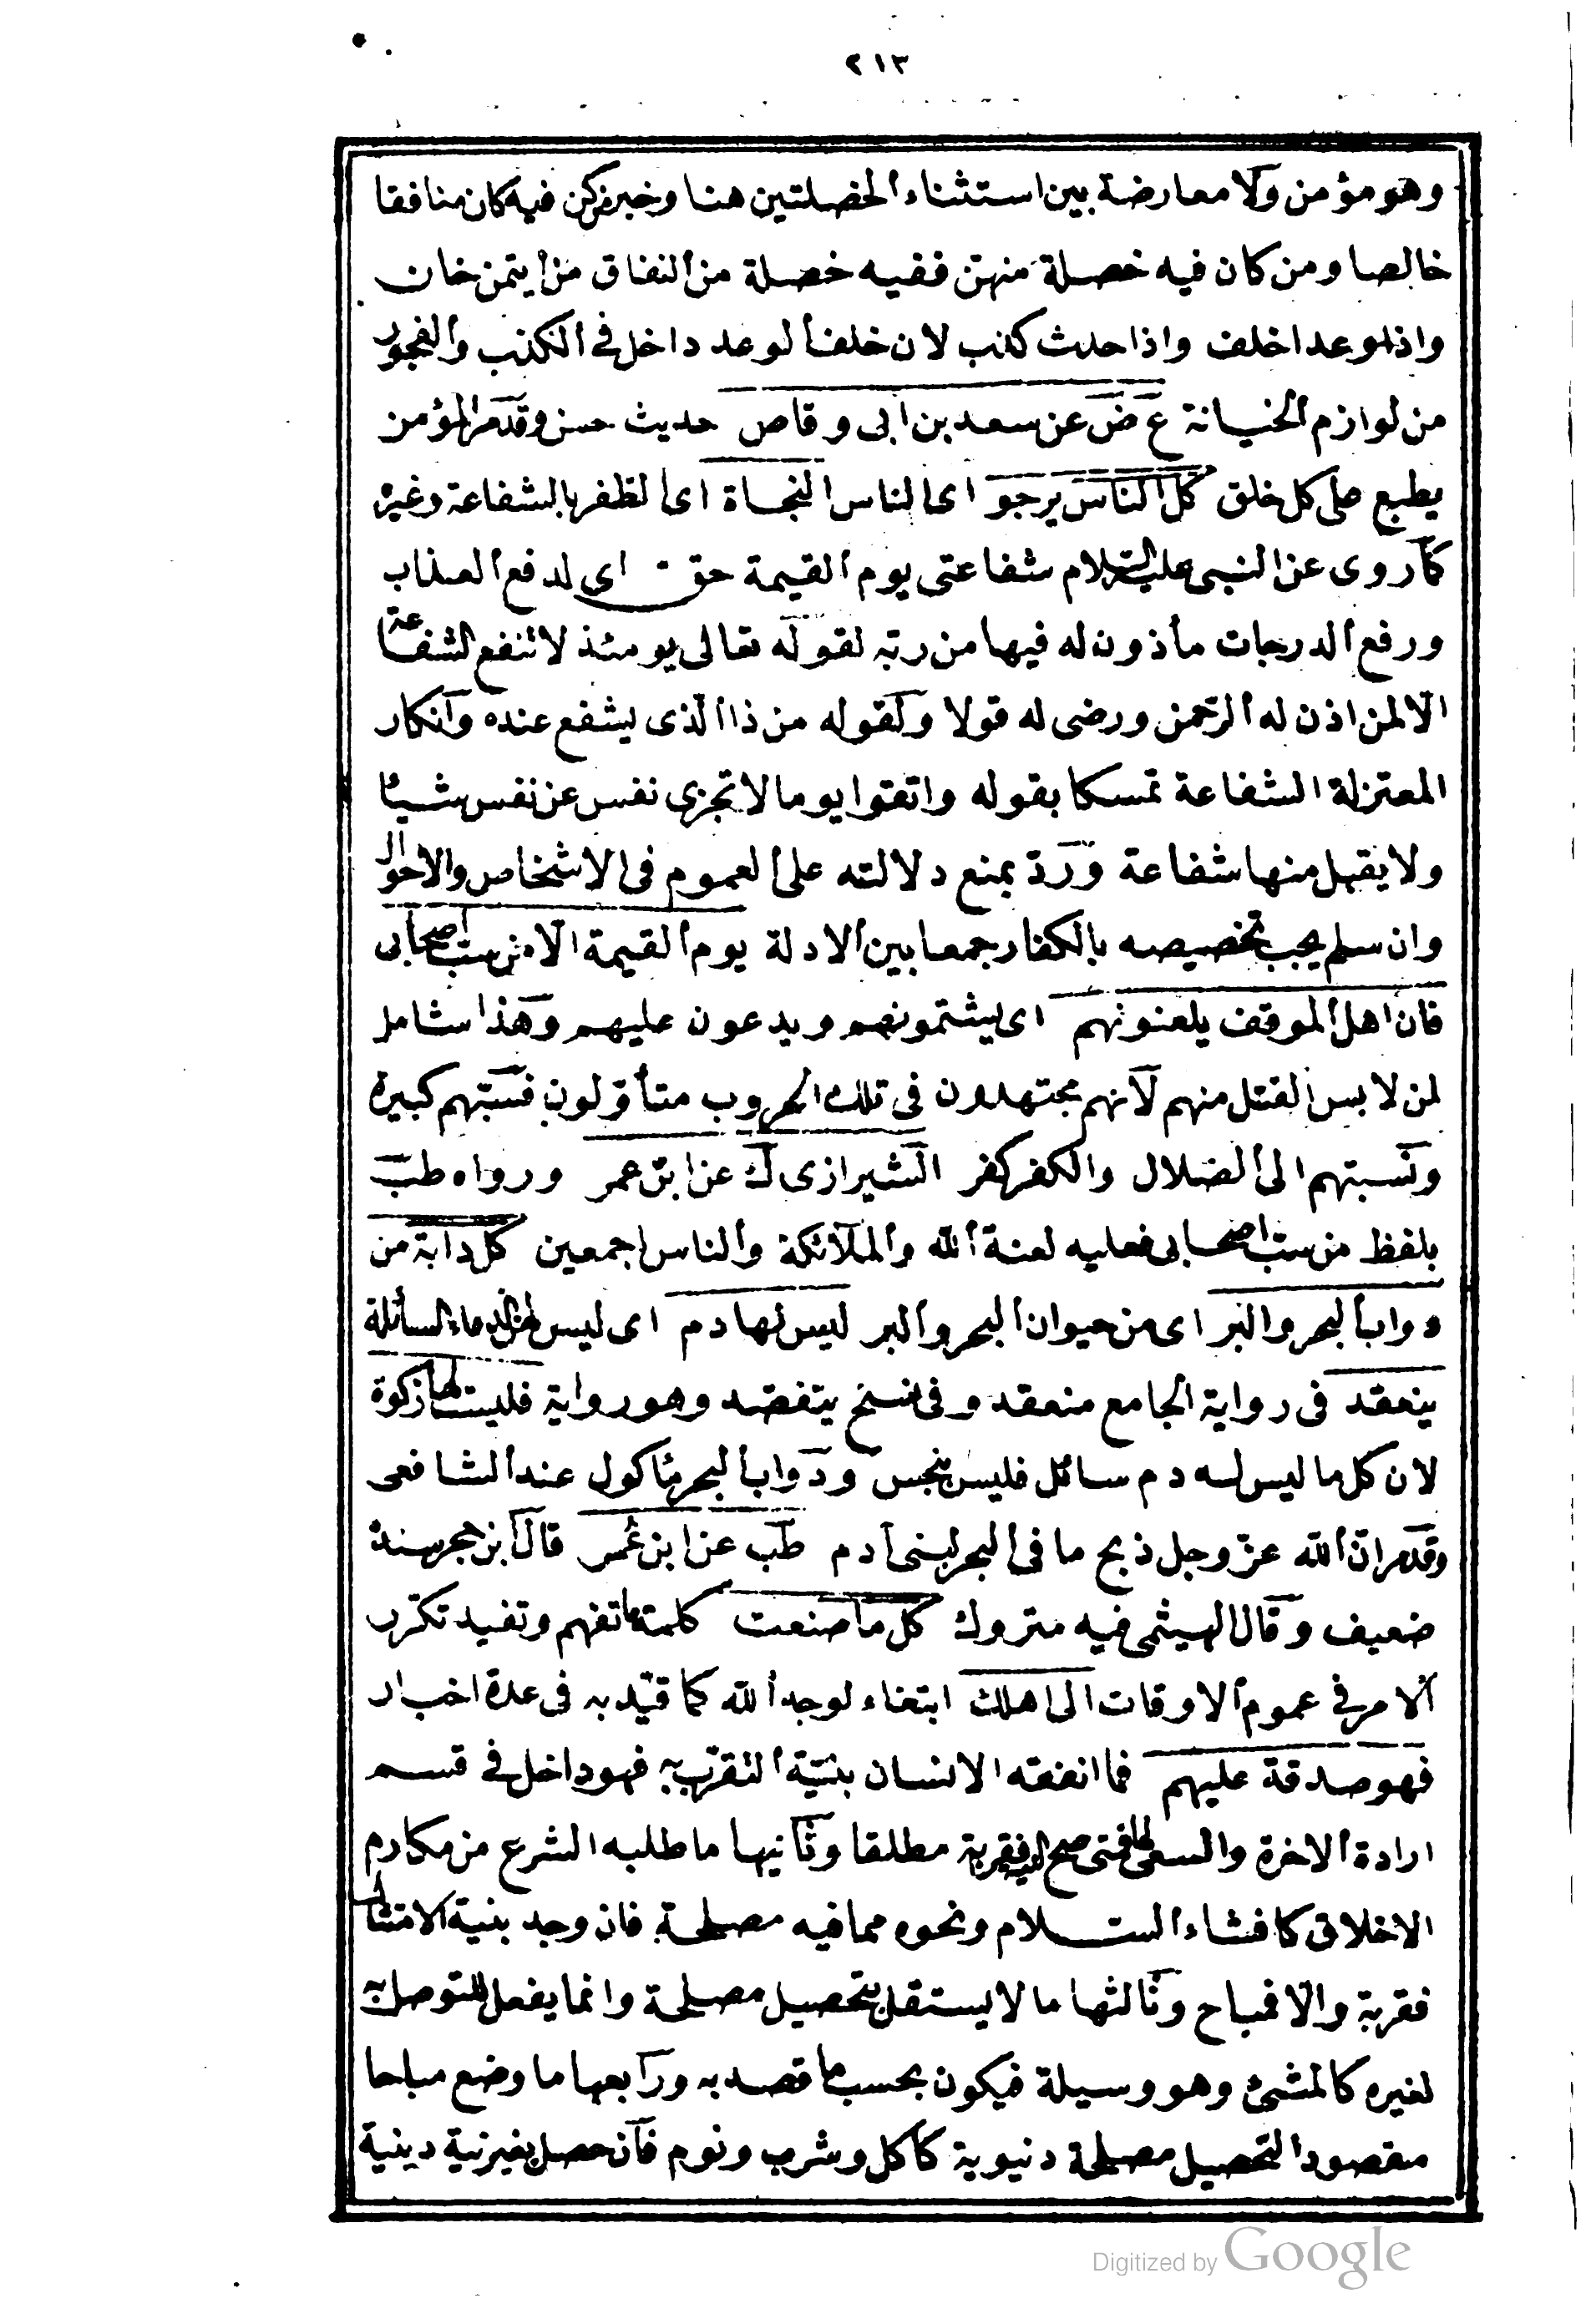 ٢١٣
وهو مؤمن ولا معارضة بين استثناء الخصلتين هنا وخبر من كن فيه كان منافقا
خالصا ومن كان فيه خصلة منهن ففيه خصلة من النفاق من ايتمن خان
واذا وعد اخلف واذا حدث كذب لان خلف الوعد داخل في الكذب والفجور
من لوازم الخيانة ع ض عن سعد بن ابى وقاص حديث حسن وقد مر المؤمن
يطبع على كل خلق كل الناس يرجو اى الناس النجاة اى الظفر بالشفاعة وغيره
كما روى عن النبى عليه السلام شفاعتى يوم القيمة حق اى لدفع العذاب
ورفع الدرجات مأذون له فيها من ربه لقوله تعالى يومئذ لا تنفع الشفاعة
الا لمن اذن له الرحمن ورضى له قولا ولقوله من ذا الذى يشفع عنده وانكار
المعتزلة الشفاعة تمسكا بقوله واتقوا يوما لا تجزى نفس عن نفس شيئا
ولا يقبل منها شفاعة ورد بمنع دلالته على العموم فى الاشخاص والاحوال
وان سلم يجب تخصيصه بالكفار جمعا بين الادلة يوم القيمة الا من سب اصحابى
فان اهل الموقف يلعنونهم اى يشتمونهم ويدعون عليهم وهذا شامل
لمن لابس القتل منهم لانهم مجتهدون فى تلك الحروب متأولون فسبهم كبيرة
ونسبتهم الى الضلال والكفر كفر الشيرازى ك عن ابن عمر ورواه طب
بلفظ من سب اصحابى فعليه لعنة الله والملائكة والناس اجمعين كل دابة من
دواب البحر والبر اى من حيوان البحر والبر ليس لها دم اى ليس لهن الدماء السائلة
ينعقد فى رواية الجامع منعقد وفى نسخ يتفصد وهو رواية فليست لها زكوة
لان كل ما ليس له دم سائل فليس بنجس ودواب البحر مأكول عند الشافعى
وقد مر ان الله عز وجل ذبح ما فى البحر لبنى آدم طب عن ابن عمر قال ابن حجر سنده
ضعيف وقال الهيثمى فيه متروك كل ما صنعت كلمة ما تفهم وتفيد تكرر
الامر في عموم الاوقات الى اهلك ابتغاء لوجه الله كما قيد به فى عدة اخبار
فهو صدقة عليهم فما انفقه الانسان بنية التقرب به فهو داخل في قسم
ارادة الاخرة والسعى لها فمتى صح النية فقربة مطلقا وثانيها ما طلبه الشرع من مكارم
الاخلاق كافشاء السلام ونحوه مما فيه مصلحة فان وجد بنية الامتثال
فقربة والا فمباح وثالثها ما لا يستقل بتحصيل مصلحة وانما يفعل للتوصل به
لغيره كالمشئ وهو وسيلة فيكون بحسب ما قصد به ورابعها ما وضع مباحا
مقصودا لتحصيل مصلحة دنيوية كاكل وشرب ونوم فان حصل بغير نية دينية
Digitized by Google